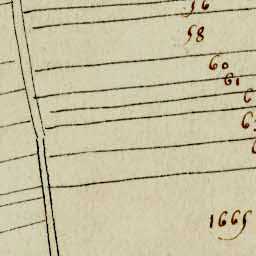 56
58
60
61
6
6
1665